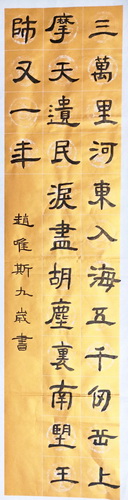 三萬里河東入海五千仞岳上
摩天遺民淚盡胡塵裏南望王
師又一年
趙唯斯九歲書